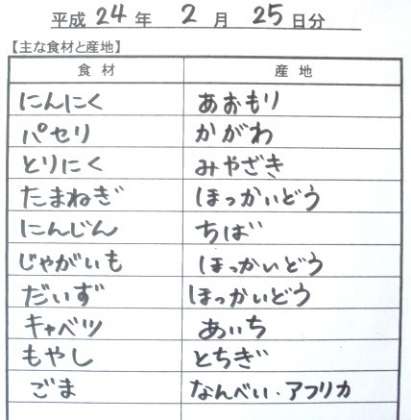 平成 24 年 2 月 25 日分
【主な食材と産地】
食材 産地
にんにく あおもり
パセリ かがわ
とりにく みやざき
たまねぎ ほっかいどう
にんじん ちば
じゃがいも ほっかいどう
だいず ほっかいどう
キャベツ あいち
もやし とちぎ
ごま なんべい・アフリカ